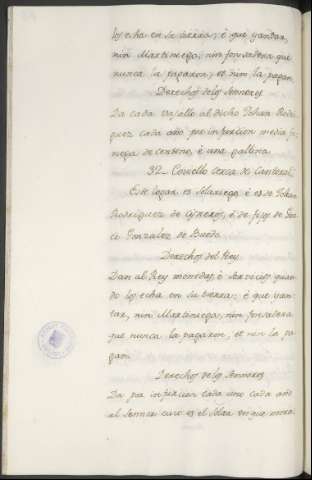 los echa en su tierra; é que yantar,
nin Martiniega, nin fonsadera que
nunca la pagaron, et nin la pagan.
Derechos de los Sennores
Da cada vasallo al dicho Johan Rodri-
guez cada año por infurcion media fa-
nega de centeno, é una gallina.
32_ Coviello cerca de Canteral
Este logar es Solariego é es de Johan
Rodriguez de Cisneros, é de fijos de Gon-
Gonzalez de Bueda.
Derechos del Rey
Dan al Rey monedas, é servicios quan-
do los echa en su tierra; é que yan-
tar, nin Martiniega, nin fonsadera
que nunca la pagaron, et nin la pa-
gan.
Derechos de los Sennores
Da por infurcion cada uno cada año
al Sennor cuio es el Solar en que mora